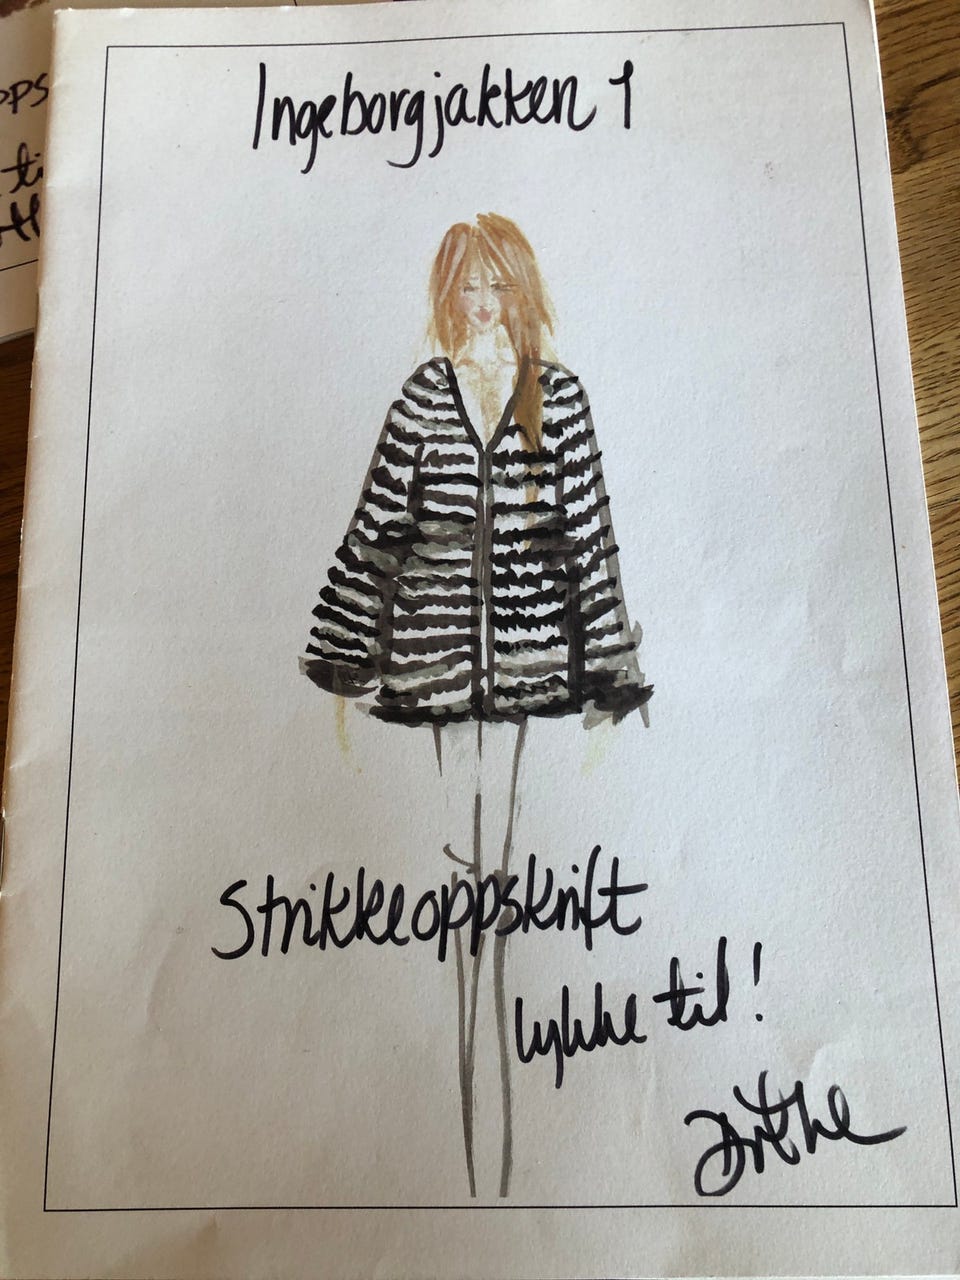 Ingeborgjakken 1
Strikkeoppskrift
lykke til!
Dorthe